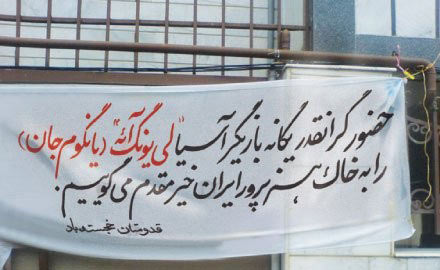 حضور گرانقدر یگانه بازیگر آسیا "لی یونگ آئه" (یانگوم جان)
را به خاک هنرپرور ایران خیر مقدم می گوییم.
قدومتان خجسته باد